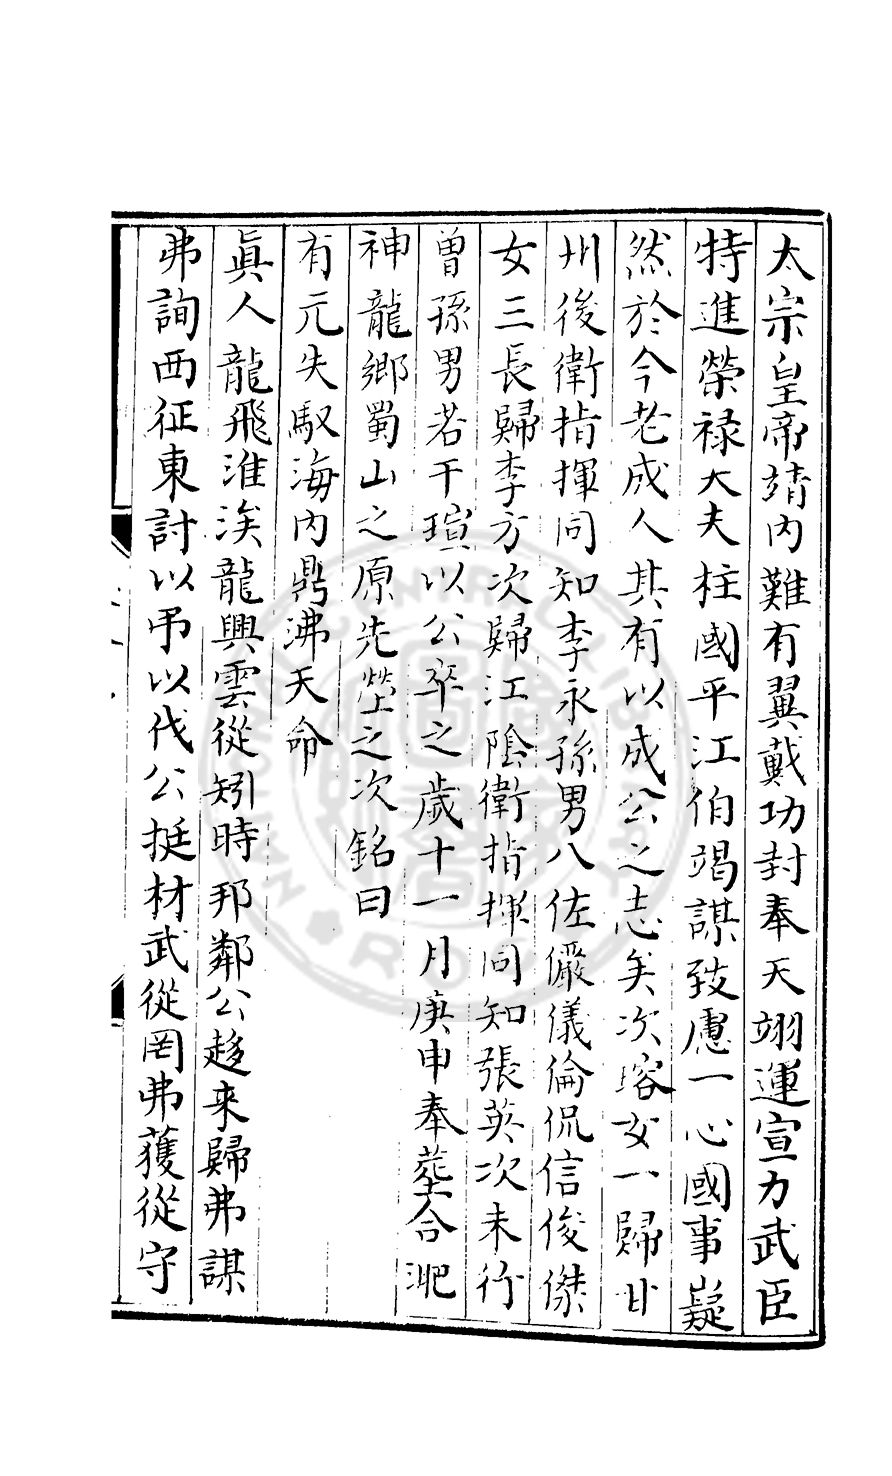 太宗皇帝靖內難有翼戴功封奉天翊運宣力武臣
特進榮祿大夫柱國平江伯竭謀致慮一心國事嶷
然於今老成人其有以成公之志矣次瑢女一歸甘
州後衛指揮同知李永孫男八佐儼儀倫侃信俊傑
女三長歸李方次歸江陰衛指揮同知張英次未行
曾孫男若干瑄以公卒之歲十一月庚申奉葬合淝
神龍鄉蜀山之原先塋之次銘曰
有元失馭海內鼎沸天命
眞人龍飛淮涘龍興雲從矧時邦鄰公趍來歸弗謀
弗詢西征東討以弔以伐公挺材武從罔弗獲從守